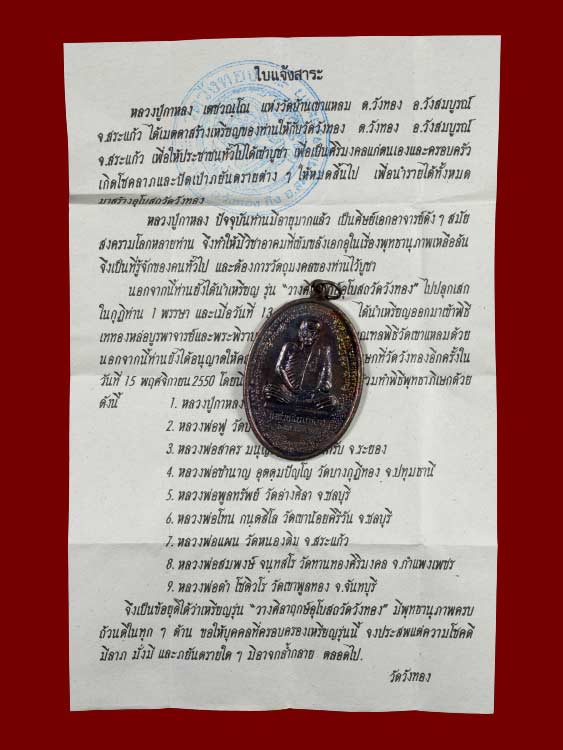 ใบแจ้งสาระ
หลวงปู่กาหลง เตชวณฺโณ แห่งวัดบ้านเขาแหลม ต.วังทอง อ.วังสมบูรณ์
จ.สระแก้ว ได้เมตตาสร้างเหรียญของท่านให้กับวัดวังทอง ต.วังทอง อ.วังสมบูรณ์
จ.สระแก้ว เพื่อให้ประชาชนทั่วไปได้เช่าบูชา เพื่อเป็นศิริมงคลแก่ตนเองและครอบครัว
เกิดโชคลาภและปัดเป่าภยันตรายต่าง ๆ ให้หมดสิ้นไป เพื่อนำรายได้ทั้งหมด
มาสร้างอุโบสถวัดวังทอง
หลวงปู่กาหลง ปัจจุบันท่านมีอายุมากแล้ว เป็นศิษย์เอกอาจารย์ดัง ๆ สมัย
สงครามโลกหลายท่าน จึงทำให้มีวิชาอาคมที่เข้มขลังเอกอุในเรื่องพุทธานุภาพเหลือล้น
จึงเป็นที่รู้จักของคนทั่วไป และต้องการวัตถุมงคลของท่านไว้บูชา
นอกจากนี้ท่านยังได้นำเหรียญ รุ่น "วางศิลาฤกษ์อุโบสถวัดวังทอง" ไปปลุกเสก
ในกุฏิท่าน 1 พรรษา และเมื่อวันที่ 13 ได้นำเหรียญออกมาเข้าพิธี
เททองหล่อบูรพาจารย์และพระพิรา ณฑลพิธีวัดเขาแหลมด้วย
นอกจากนี้ท่านยังได้อนุญาตให้ค ษกที่วัดวังทองอีกครั้งใน
วันที่ 15 พฤศจิกายน 2550 โดยน วมทำพิธีพุทธาภิเษกด้วย
ดังนี้ 1. หลวงปู่กาหลง
2. หลวงพ่อฟู วัดบ
3. หลวงพ่อสาคร มนุญฺ จ.ระยอง
4. หลวงพ่อชำนาญ อุตฺตมปัญฺโญ วัดบางกุฎีทอง จ.ปทุมธานี
5. หลวงพ่อพูลทรัพย์ วัดอ่างศิลา จ.ชลบุรี
6. หลวงพ่อโทน กนฺตสีโล วัดเขาน้อยคีรีวัน จ.ชลบุรี
7. หลวงพ่อแผน วัดหนองติม จ.สระแก้ว
8. หลวงพ่อสมพงษ์ จนฺทสโร วัดทานทองศิริมงคล จ.กำแพงเพชร
9. หลวงพ่อดำ โชติวโร วัดเขาพูลทอง จ.จันทบุรี
จึงเป็นข้อยุติได้ว่าเหรียญรุ่น "วางศิลาฤกษ์อุโบสถวัดวังทอง" มีพุทธานุภาพครบ
ถ้วนดีในทุก ๆ ด้าน ขอให้บุคคลที่ครอบครองเหรียญรุ่นนี้ จงประสพแต่ความโชคดี
มีลาภ มั่งมี และภยันตรายใด ๆ มิอาจกล้ำกลาย ตลอดไป.
วัดวังทอง